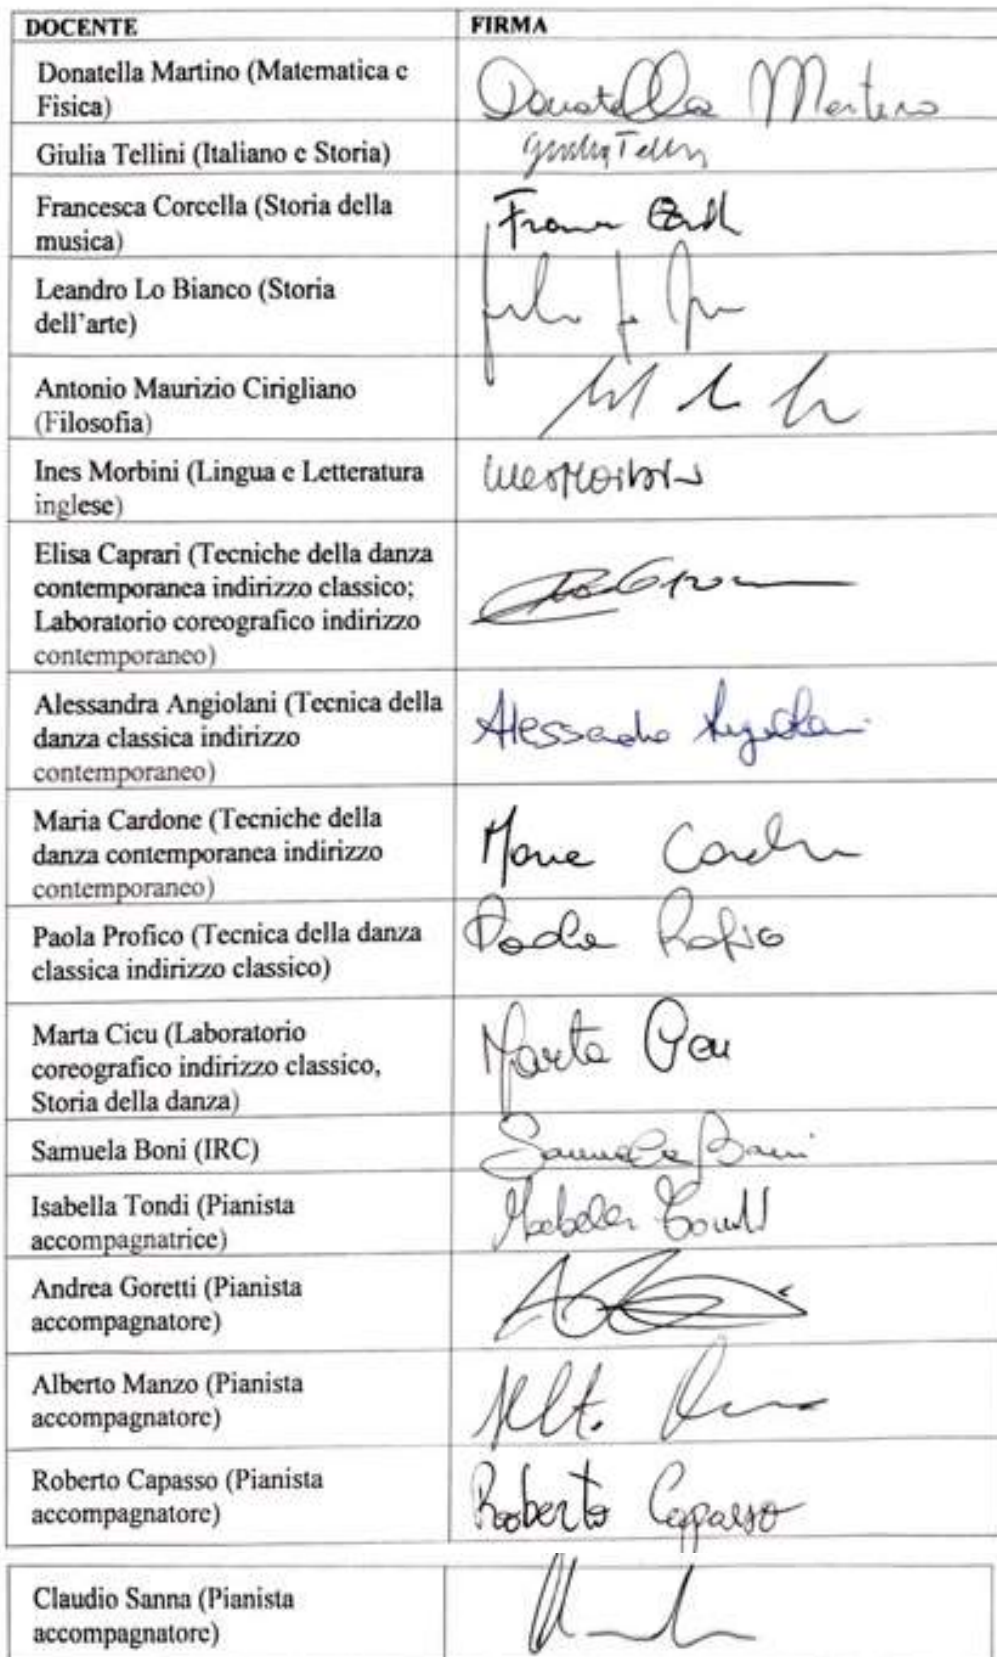 DOCENTE FIRMA
Donatella Martino (Matematica e
Fisica)
Donatella Martino
Giulia Tellini (Italiano e Storia)
Giulia Tellini
Francesca Corcella (Storia della
musica)
Leandro Lo Bianco (Storia
dell'arte)
Antonio Maurizio Cirigliano
(Filosofia)
Ines Morbini (Lingua e Letteratura
inglese)
Ines Morbini
Elisa Caprari (Tecniche della danza
contemporanea indirizzo classico;
Laboratorio coreografico indirizzo
contemporaneo)
Alessandra Angiolani (Tecnica della
danza classica indirizzo
contemporaneo)
Alessandra Angiolani
Maria Cardone (Tecniche della
danza contemporanea indirizzo
contemporaneo)
Maria Cardone
Paola Profico (Tecnica della danza
classica indirizzo classico)
Paola Profico
Marta Cicu (Laboratorio
coreografico indirizzo classico,
Storia della danza)
Marta Cicu
Samuela Boni (IRC)
Samuela Boni
Isabella Tondi (Pianista
accompagnatrice)
Isabella Tondi
Andrea Goretti (Pianista
accompagnatore)
Alberto Manzo (Pianista
accompagnatore)
Roberto Capasso (Pianista
accompagnatore)
Roberto Capasso
Claudio Sanna (Pianista
accompagnatore)